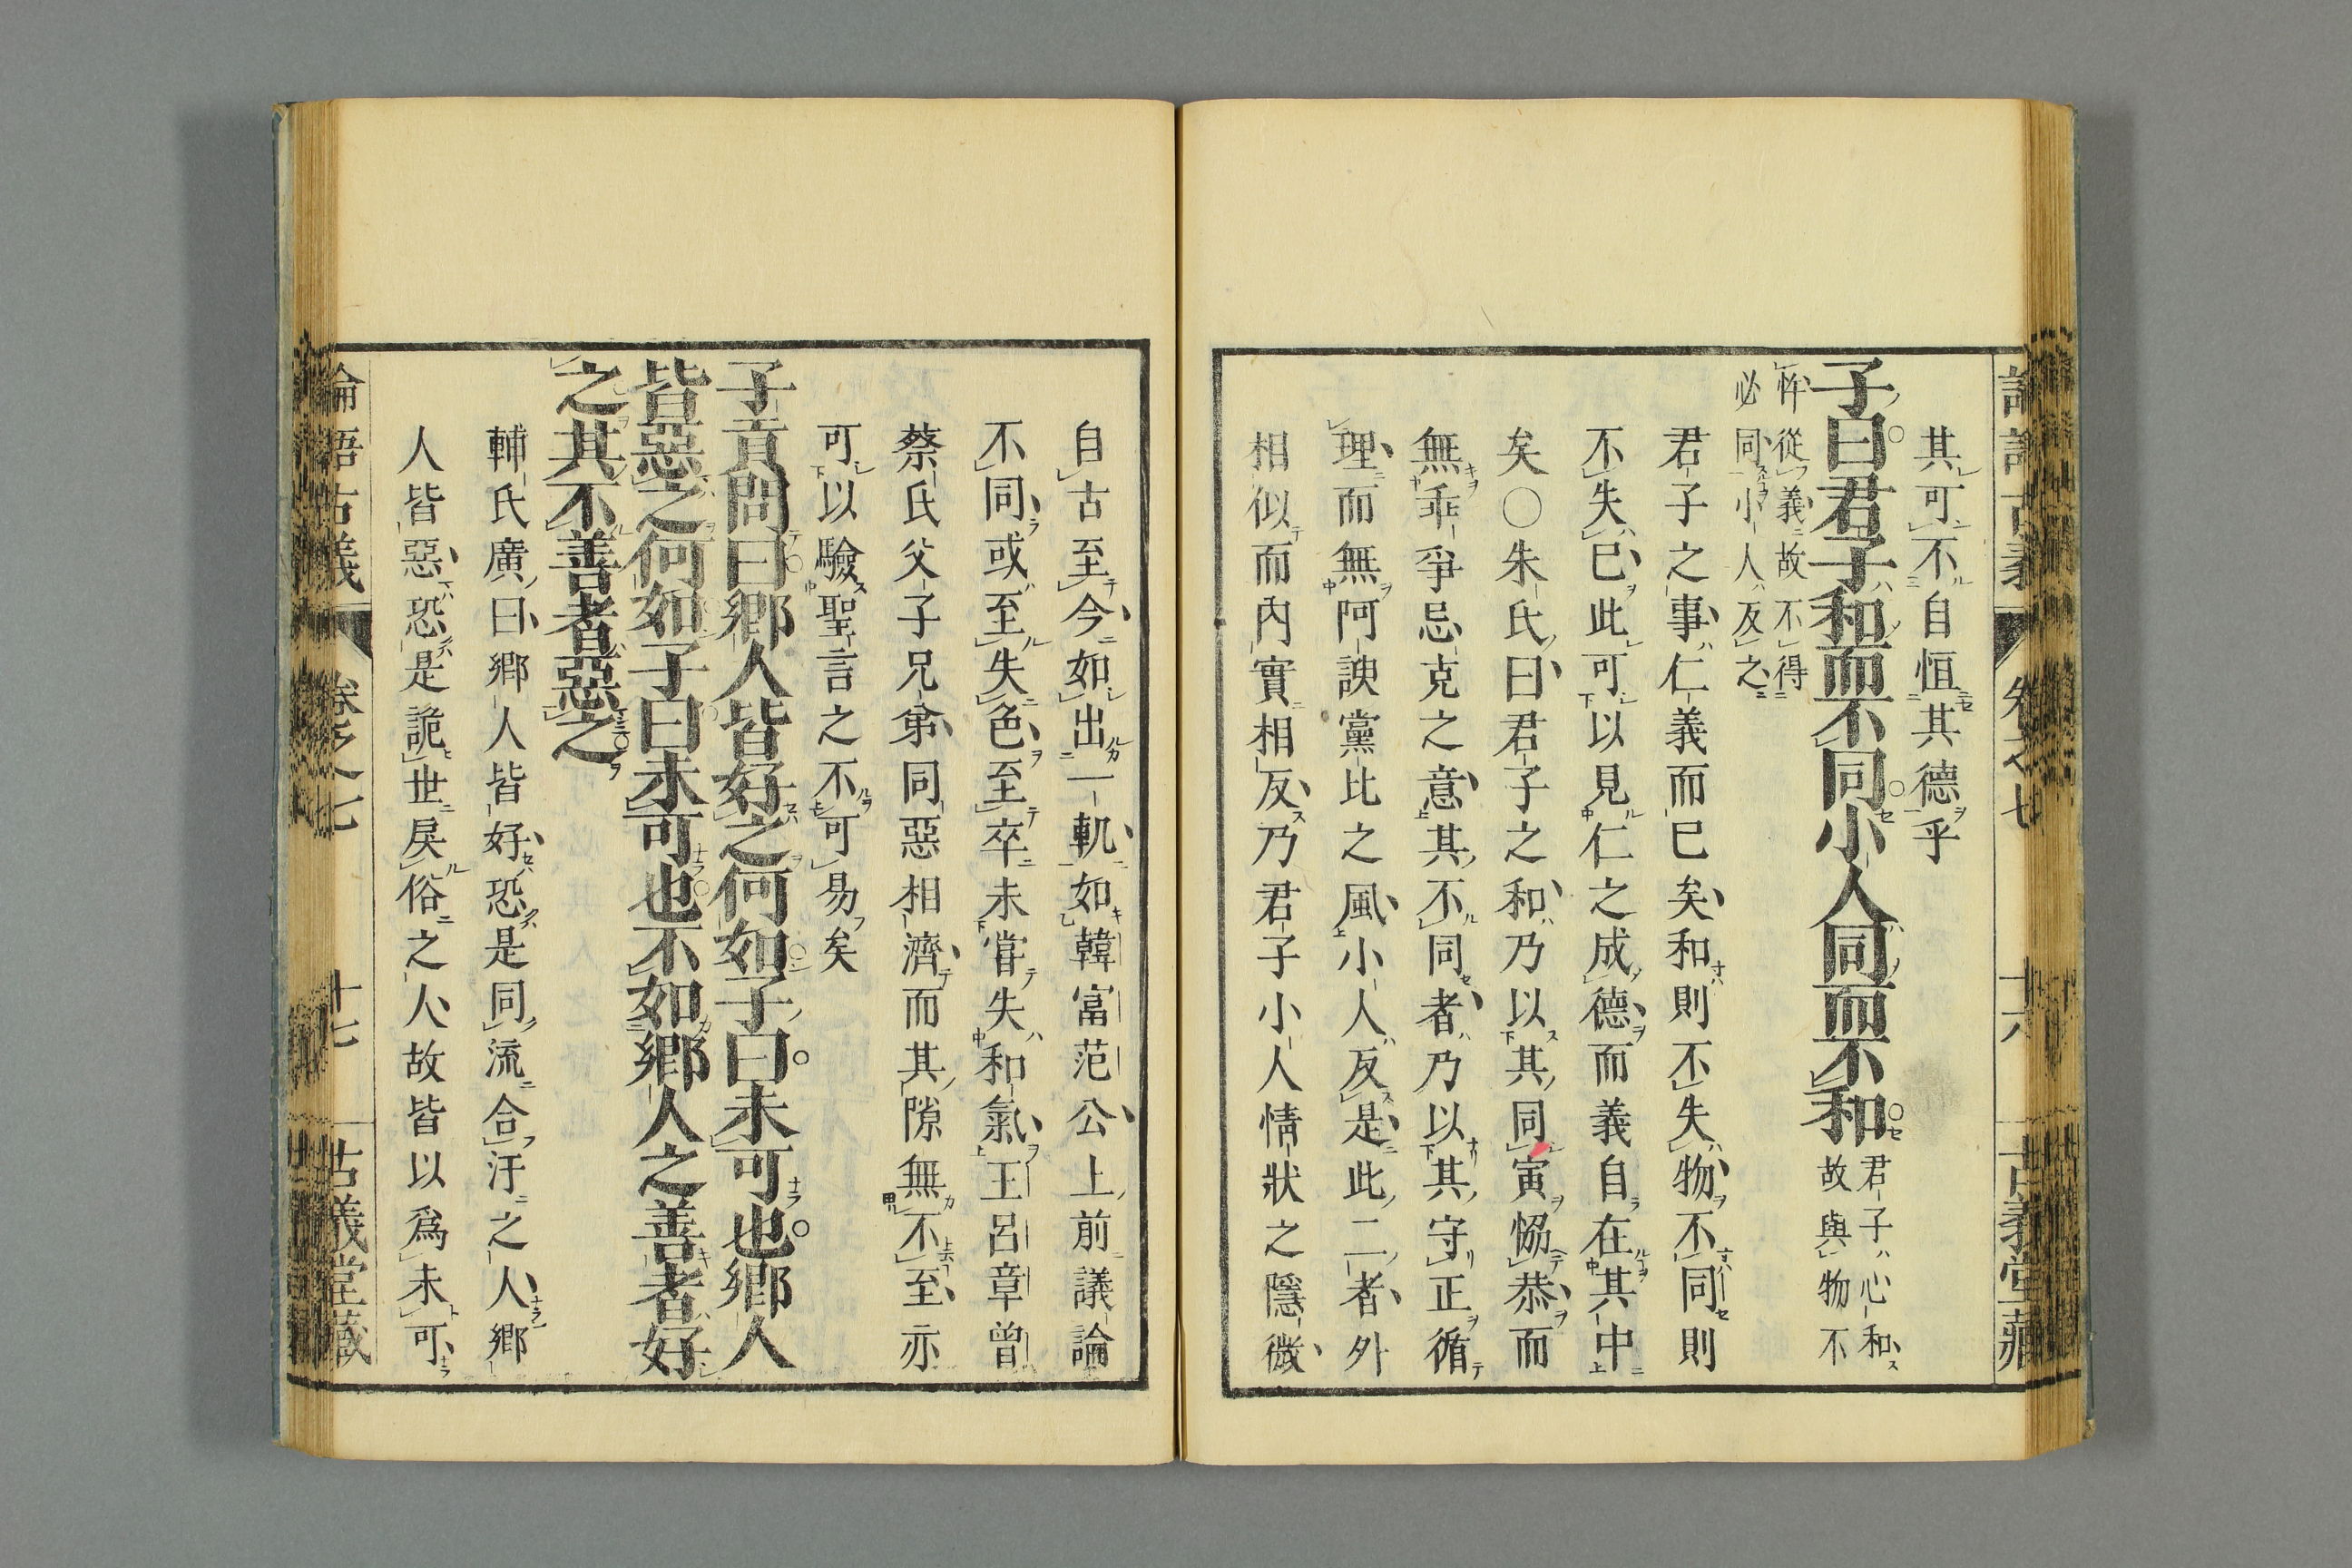 其可不自恒其德乎
子曰君子和而不同小人同而不和
君子心和
故與物不
忤從義故不得
必同小人反之
君子之事仁義而已矣和則不失物不同則
不失已此可以見仁之成德而義自在其中
矣○朱氏曰君子之和乃以其同寅恊恭而
無乖爭忌克之意其不同者乃以其守正循
理而無阿諛黨比之風小人反是此二者外
相似而內實相反乃君子小人情狀之隱微
自古至今如出一軌如韓富范公上前議論
不同或至失色至卒未甞失和氣王呂章曾
蔡氏父子兄弟同惡相濟而其隙無不至亦
可以驗聖言之不可易矣
子貢問曰鄉人皆好之何如子曰未可也鄉人
皆惡之何如子曰未可也不如鄉人之善者好
之其不善者惡之
輔氏廣曰鄉人皆好恐是同流合汙之人鄉
人皆惡恐是詭世戾俗之人故皆以爲未可
論語古義 卷之七 十七 古義堂藏